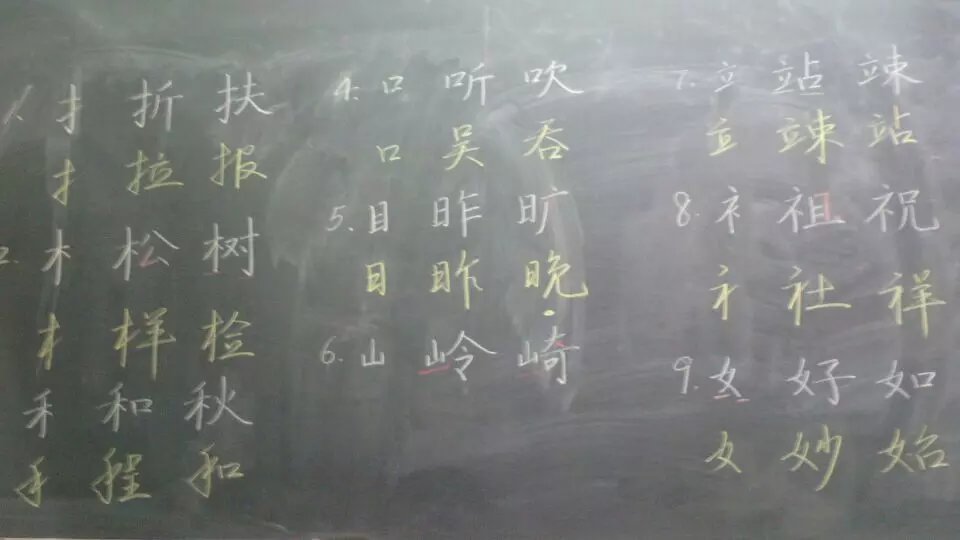 1. 扌 折 扶
扌 拉 报
2. 木 松 树
木 样 检
禾 和 秋
禾 程 和
4. 口 听 吹
口 吴 吞
5. 日 昨 旷
日 昨 晚
6. 山 岭 崎
7. 立 站 竦
立 竦 站
8. 礻 祖 祝
礻 社 祥
9. 女 好 如
女 妙 始